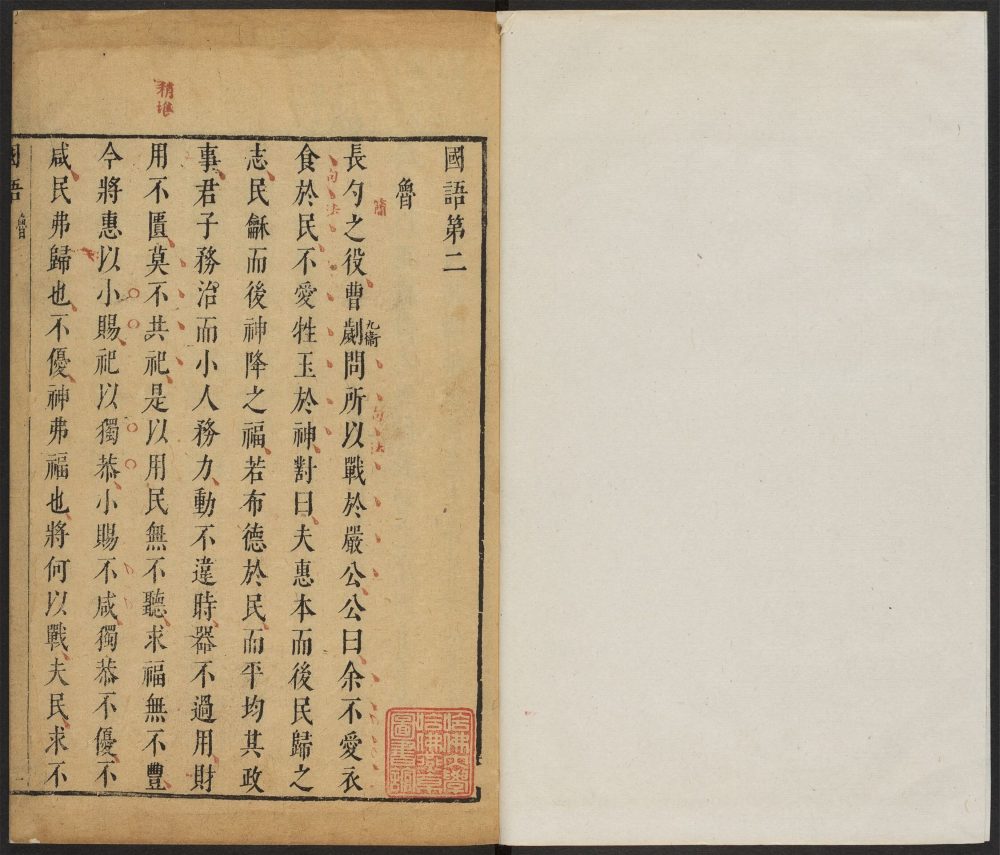 國語第二
魯
長勺之役曹劌九衞問所以戰於嚴公公曰余不愛衣
食於民不愛牲玉於神對曰夫惠本而後民歸之
志民龢而後神降之福若布德於民而平均其政
事君子務治而小人務力動不違時器不過用財
用不匱莫不共祀是以用民無不聽求福無不豐
今將惠以小賜祀以獨恭小賜不咸獨恭不優不
咸民弗歸也不優神弗福也將何以戰夫民求不
國語
魯
句法
句法
哈佛大學
哈佛燕京
圖書館